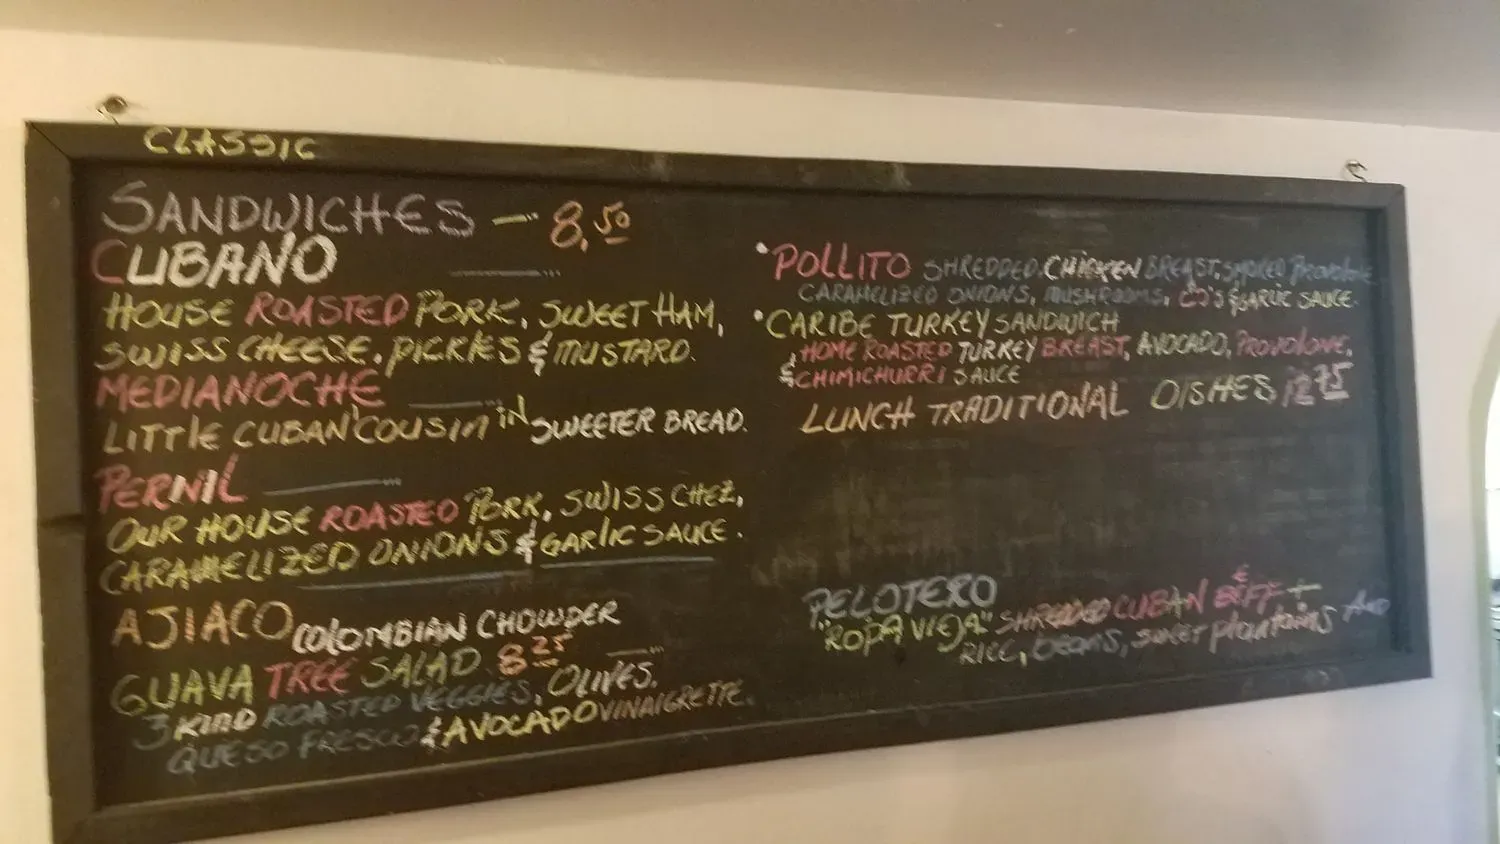 CLASSIC
SANDWICHES - 8.50
CUBANO
HOUSE ROASTED PORK, SWEET HAM,
SWISS CHEESE, PICKLES & MUSTARD.
MEDIANOCHE
LITTLE CUBAN COUSIN IN SWEETER BREAD.
PERNIL
OUR HOUSE ROASTED PORK, SWISS CHEZ,
CARAMELIZED ONIONS & GARLIC SAUCE.
AJIACO COLOMBIAN CHOWDER
GUAVA TREE SALAD 8.25
3 KIND ROASTED VEGGIES, OLIVES,
QUESO FRESCO & AVOCADO VINAIGRETTE.
• POLLITO SHREDDED CHICKEN BREAST, SMOKED PROVOLONE
CARAMELIZED ONIONS, MUSHROOMS, & GARLIC SAUCE.
• CARIBE TURKEY SANDWICH
HOME ROASTED TURKEY BREAST, AVOCADO, PROVOLONE,
& CHIMICHURRI SAUCE
LUNCH TRADITIONAL DISHES 12.75
PELOTERO
"ROPA VIEJA" SHREDDED CUBAN BEEF +
RICE, BEANS, SWEET PLANTAINS AND